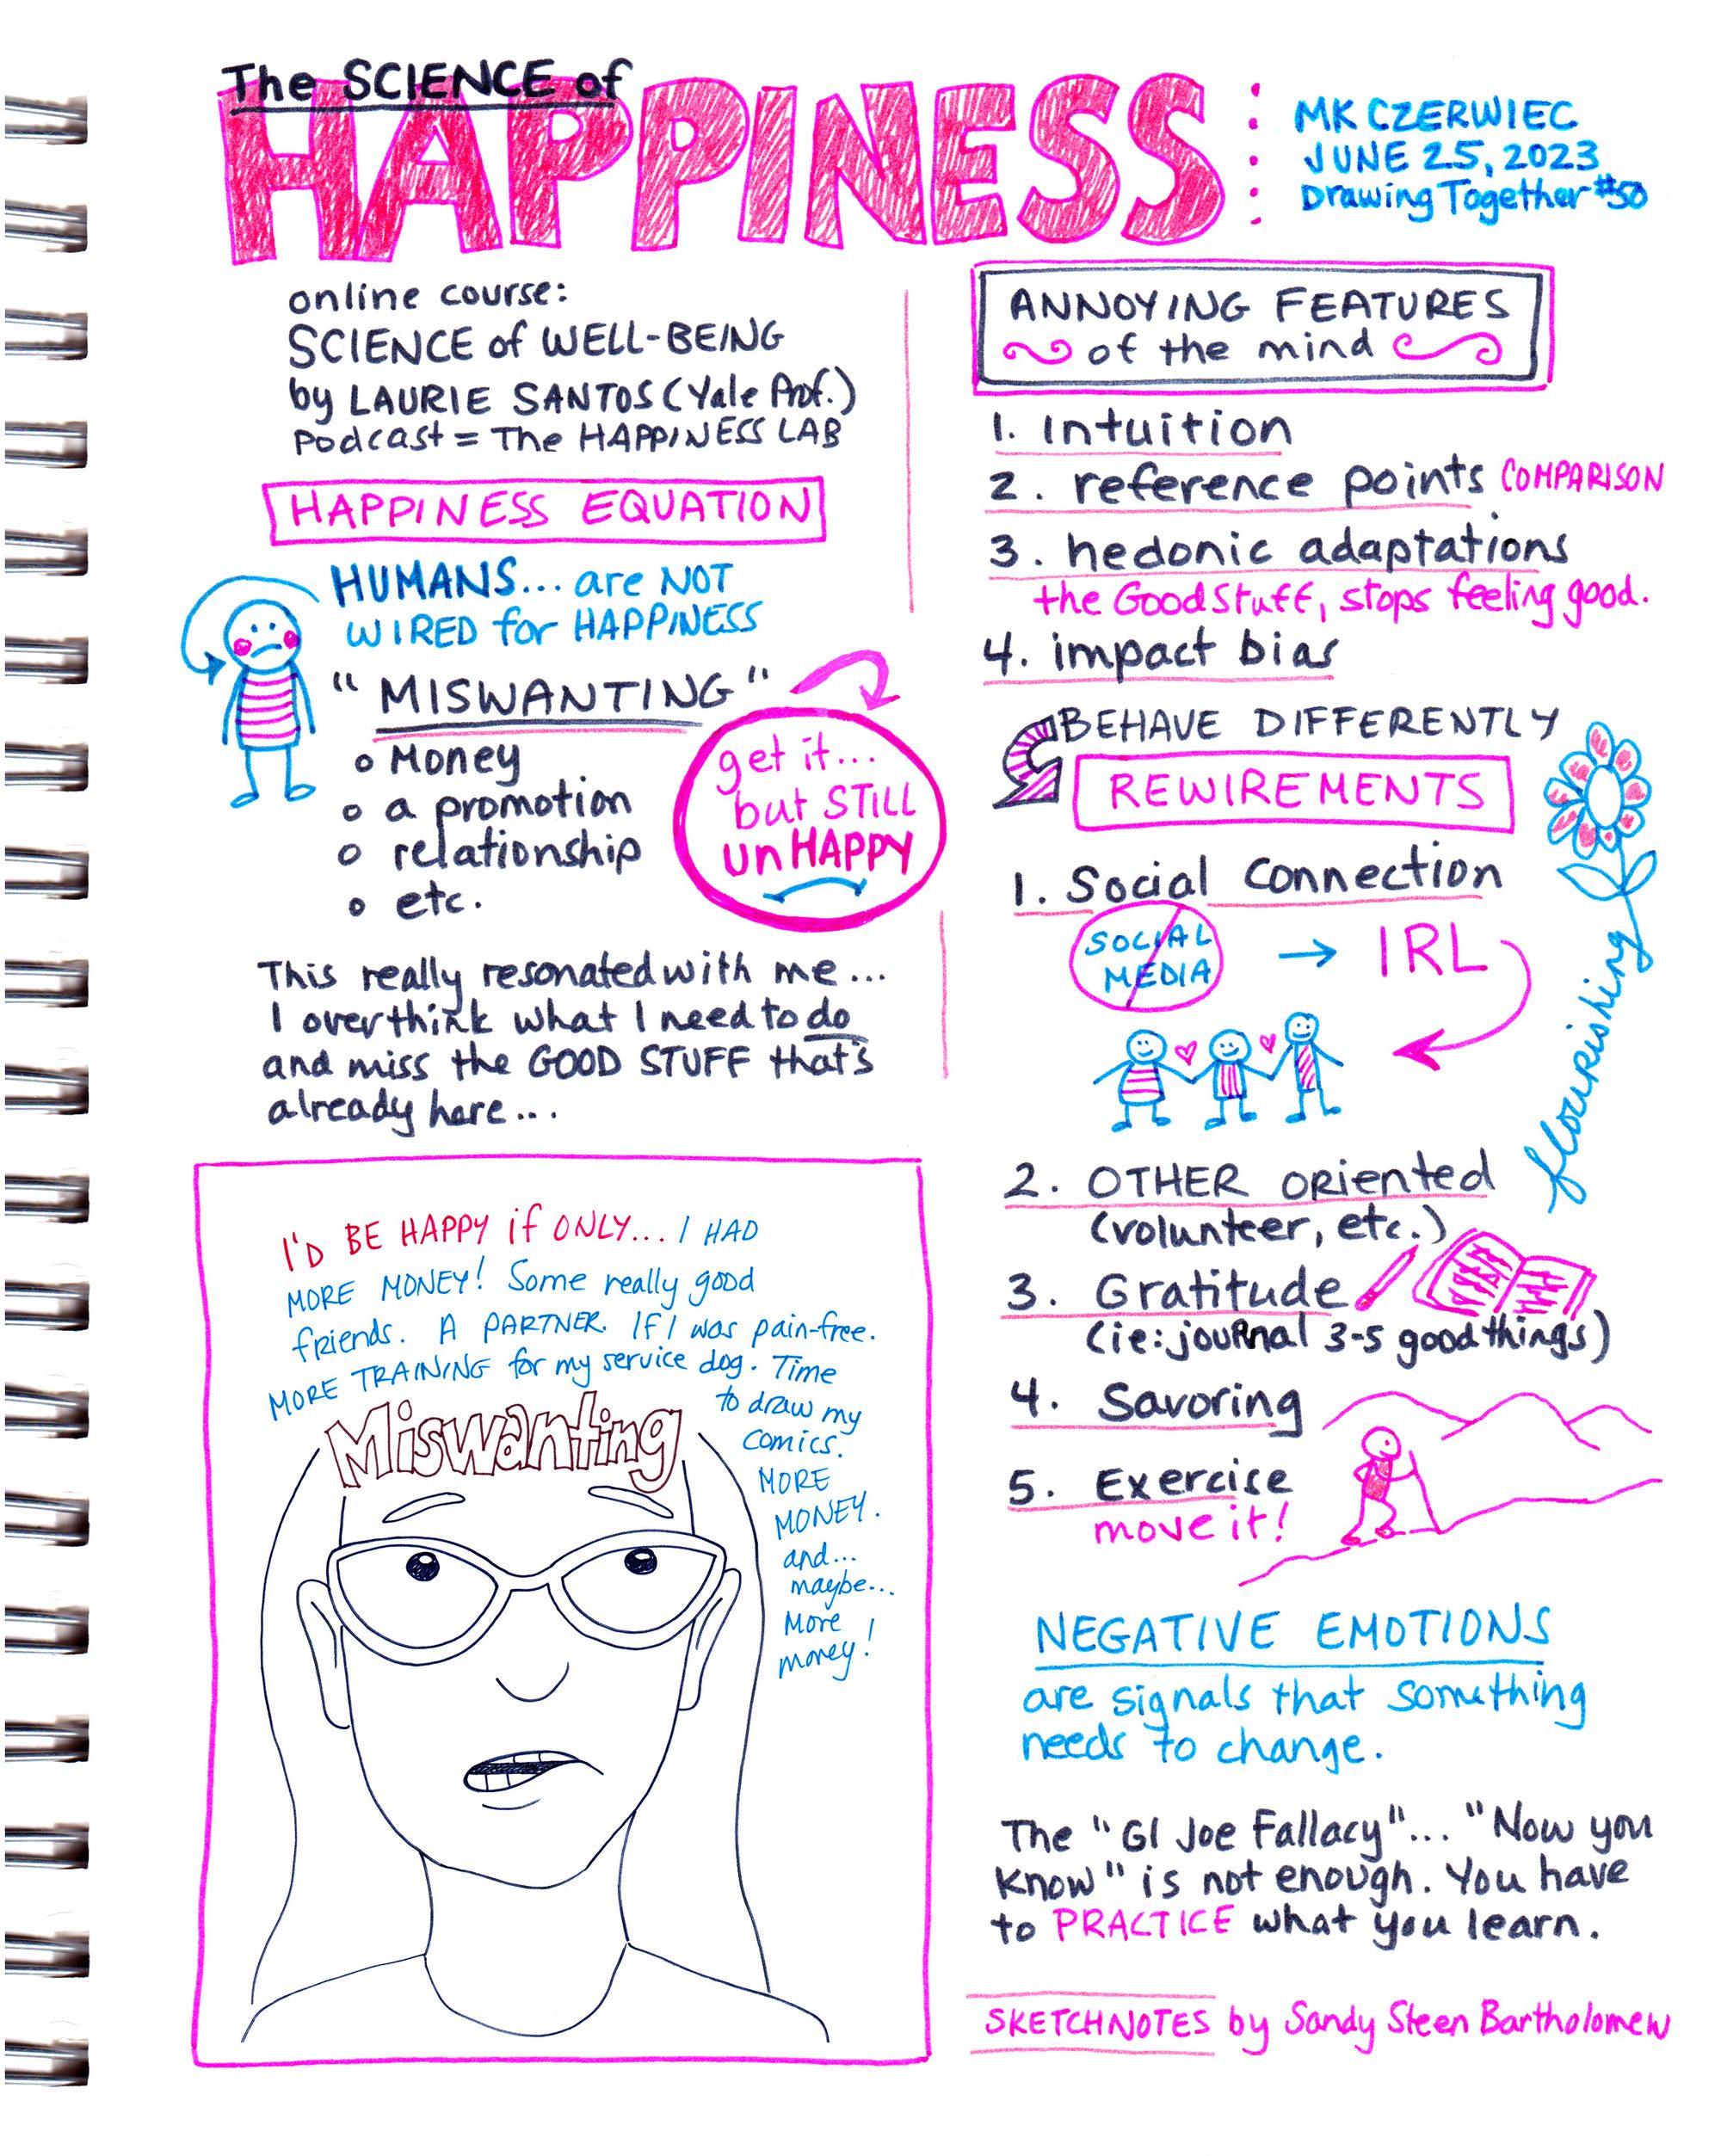 The SCIENCE of
HAPPINESS
MK CZERWIEC
JUNE 25, 2023
Drawing Together #50
online course:
SCIENCE of WELL-BEING
by LAURIE SANTOS (Yale Prof.)
Podcast = The HAPPINESS LAB
HAPPINESS EQUATION
HUMANS... are NOT
WIRED for HAPPINESS
"MISWANTING"
o Money
o a promotion
o relationship
o etc.
get it...
but STILL
unHAPPY
This really resonated with me...
I overthink what I need to do
and miss the GOOD STUFF that's
already here...
I'D BE HAPPY if ONLY... I HAD
MORE MONEY! Some really good
friends. A PARTNER. If I was pain-free.
MORE TRAINING for my service dog. Time
to draw my
comics.
MORE
MONEY.
and...
maybe...
More
money!
Miswanting
ANNOYING FEATURES
of the mind
1. Intuition
2. reference points COMPARISON
3. hedonic adaptations
the Good Stuff, stops feeling good.
4. impact bias
BEHAVE DIFFERENTLY
REWIREMENTS
1. Social Connection
SOCIAL
MEDIA
→ IRL
flourishing
2. OTHER oriented
(volunteer, etc.)
3. Gratitude
(ie: journal 3-5 good things)
4. Savoring
5. Exercise
move it!
NEGATIVE EMOTIONS
are signals that something
needs to change.
The "GI Joe Fallacy"... "Now you
know" is not enough. You have
to PRACTICE what you learn.
SKETCHNOTES by Sandy Steen Bartholomew